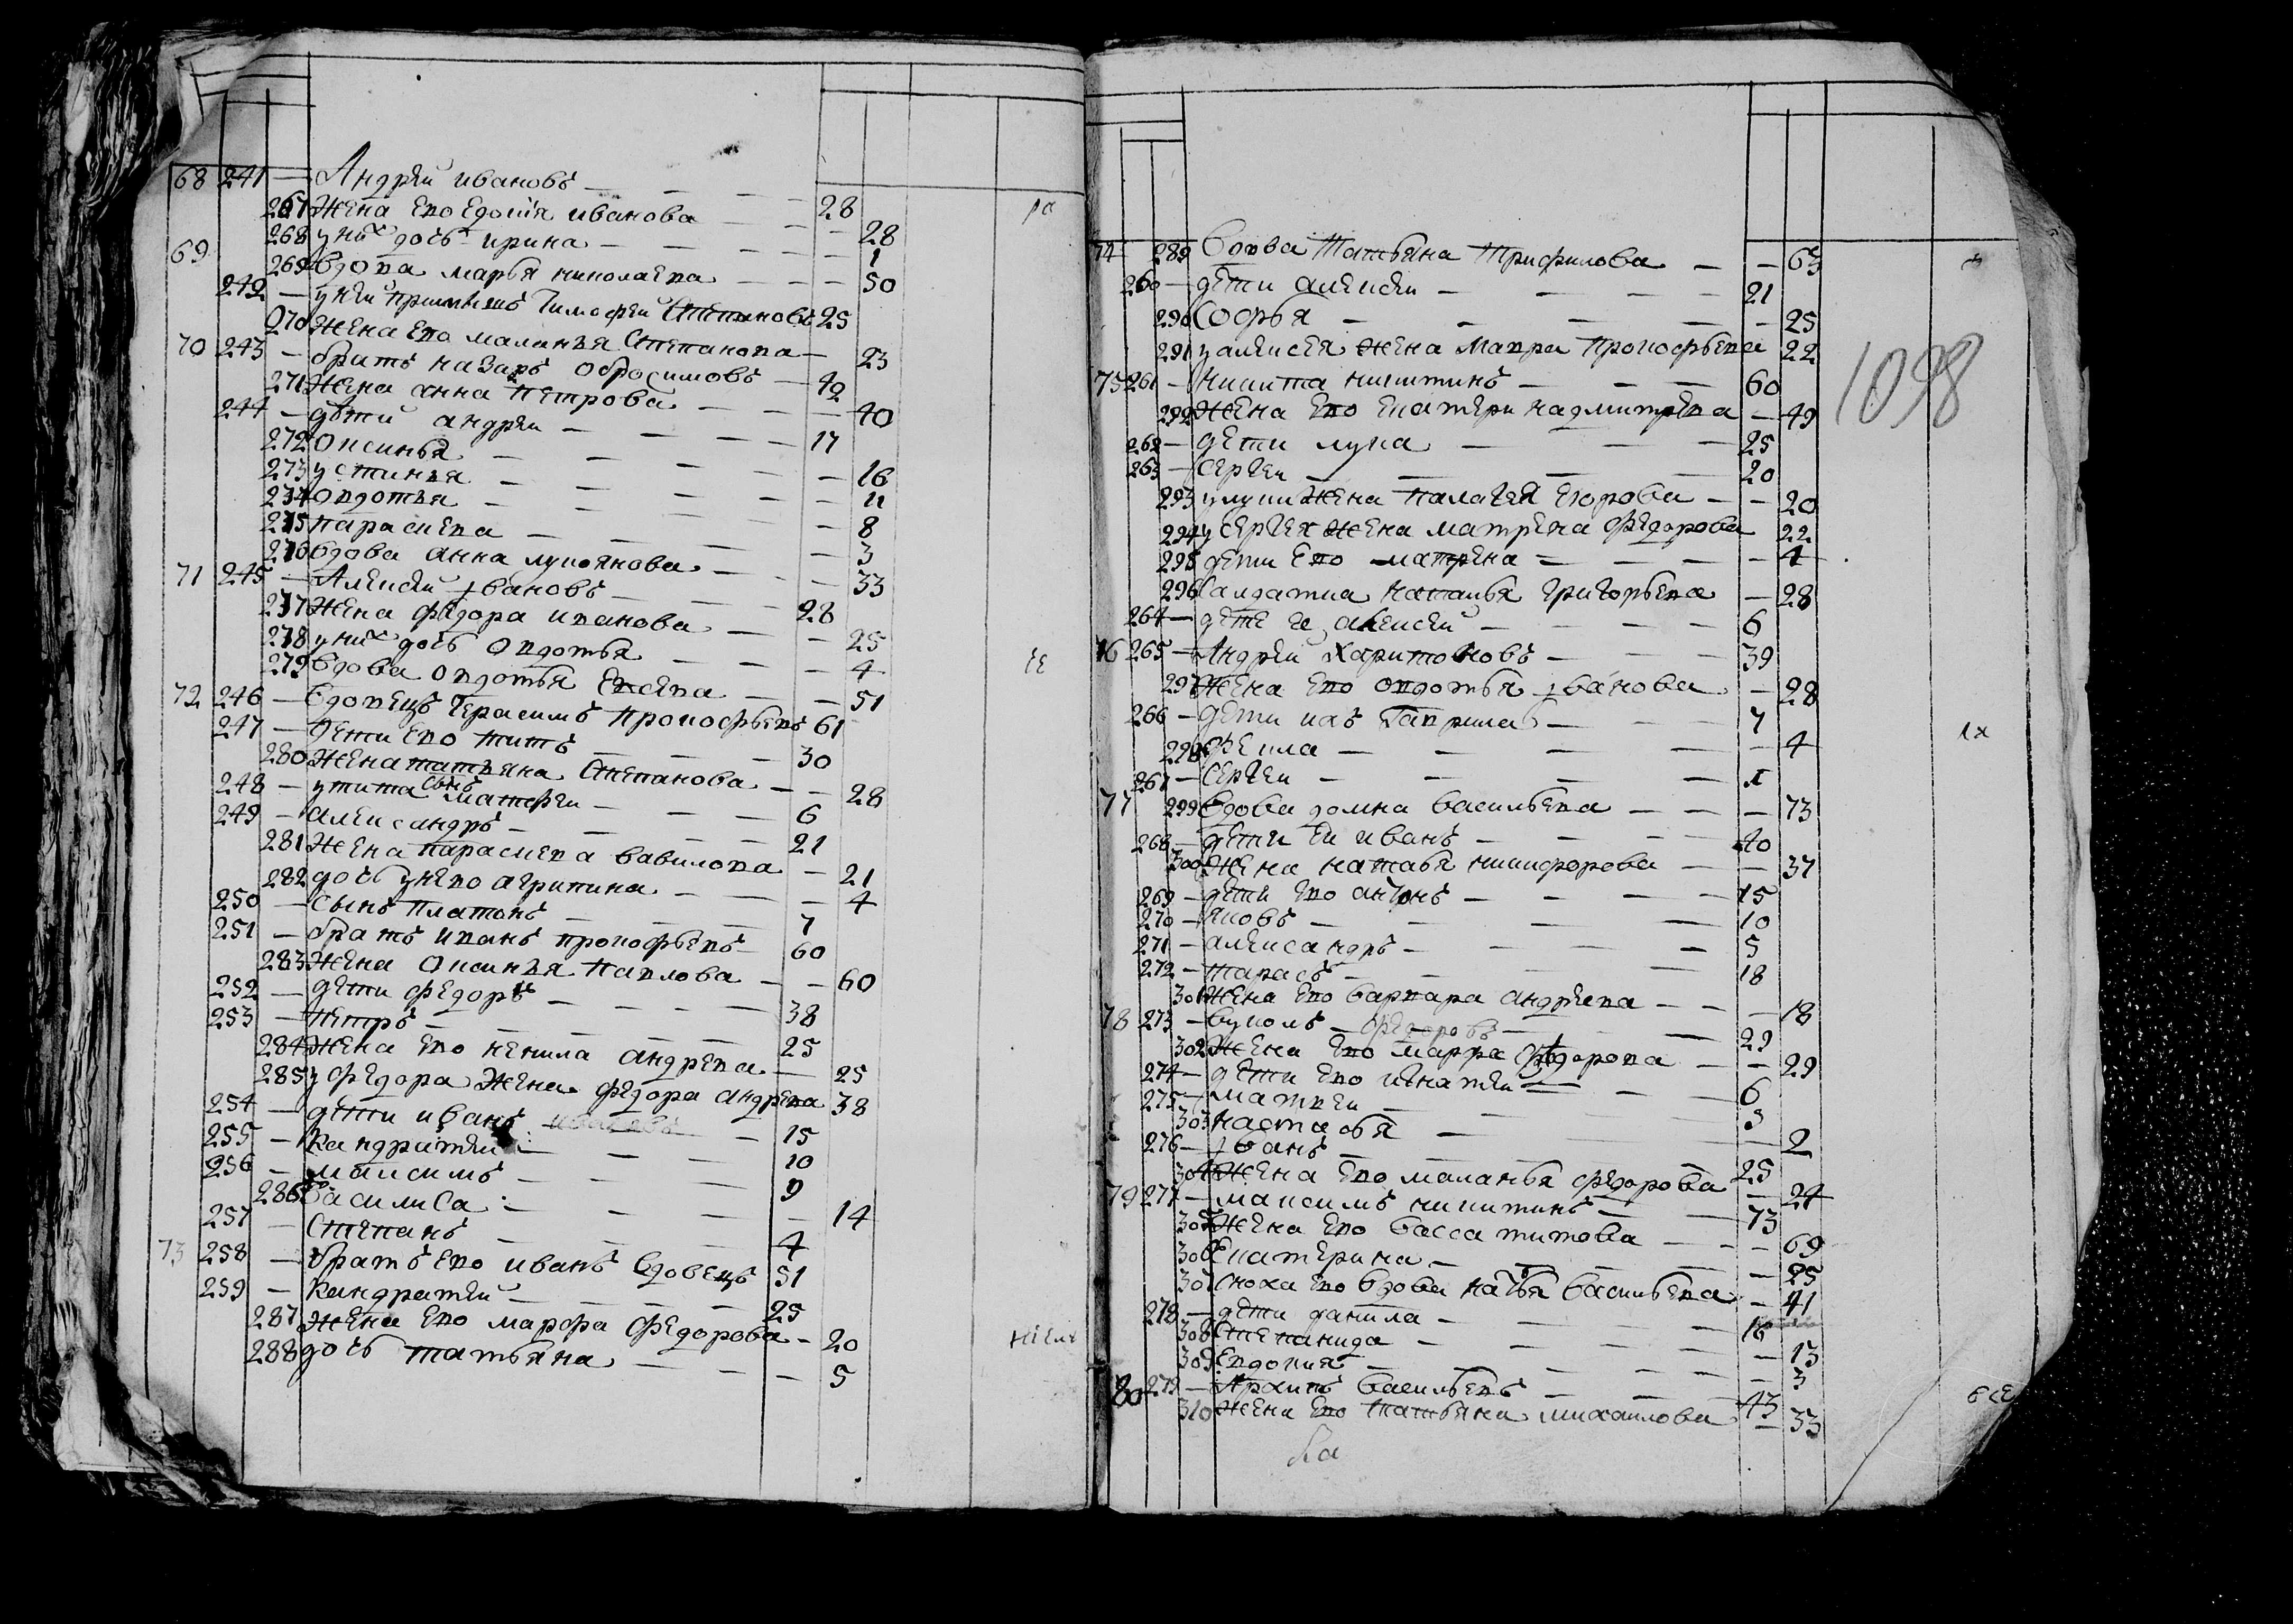 68 241 — Андрей ивановъ — 28
267 Жена ево Едокия иванова — 28
268 у них дочь ирина — 1
69 269 вдова марья николаева — 50
242 — у ней приимышъ Тимофей Степановъ 25
270 Жена ево маланья Степанова — 23
70 243 — братъ назаръ обросимовъ — 42
271 Жена анна петрова — 40
244 — дѣти андрей — 17
272 Оксинья — 16
273 устинья — 11
274 овдотья — 8
275 параскева — 3
276 вдова анна лукоянова — 33
71 245 — Алексей ивановъ — 28
277 Жена федора иванова — 25
278 у них дочь Овдотья — 4
279 вдова Овдотья Евсева — 51
72 246 — вдовецъ Герасимъ прокофьевъ 61
247 — дети ево титъ — 30
280 Жена татьяна Степанова — 28
248 — у тита сынъ матфей — 6
249 — александръ — 21
281 Жена параскева вавилова — 21
282 дочь у нево агрипина — 4
250 — сынъ платонъ — 7
251 — братъ иванъ прокофьевъ — 60
283 Жена Оксинья павлова — 60
252 — дети федоръ — 38
253 — петръ — 25
284 Жена ево ненила андрева — 25
285 у федора Жена федора андрева 38
254 — дети иванъ — 15
255 — кандратей — 10
256 — максимъ — 9
286 василиса — 14
257 — степанъ — 4
73 258 — братъ ево иванъ вдовецъ 51
259 — кандратей — 25
287 Жена ево марфа федорова — 20
288 дочь татьяна — 5
74 289 вдова татьяна трифилова — 63
260 — дети алексей — 21
290 Софья — 25
291 у алексея жена мавра прокофьева 22
75 261 — никита никитинъ — 60
292 Жена ево екатерина дмитрева — 49
262 — дети лука — 25
263 — сергей — 20
293 у луки жена палагея егорова — 20
294 у сергея жена матрена федорова 22
295 дети ево матрена — 4
296 салдатка наталья григорьева — 28
264 — дети ее алексей — 6
76 265 — Андрей Харитоновъ — 39
297 Жена ево овдотья иванова — 28
266 — дети ихъ гаврила — 7
298 фекла — 4
267 — сергей — 1
77 299 вдова домна васильева — 73
268 — дети ей иванъ — 40
300 Жена наталья никифорова — 37
269 — дети ево антонъ — 15
270 — яковъ — 10
271 — александръ — 5
272 — тарасъ — 18
301 Жена ево варвара андреева — 18
78 273 — вуколъ федоровъ — 29
302 Жена ево марфа федорова — 29
274 — дети ево игнатей — 6
275 — матвей — 3
303 настасья — 2
276 — иванъ — 25
304 Жена ево маланья федорова — 24
79 277 — максимъ никитинъ — 73
305 Жена ево васса титова — 69
306 екатерина — 25
307 сноха ево вдова васильева — 41
278 — дети данила — 16
308 степанида — 13
309 Евдокия — 3
80 279 — Архипъ васильевъ — 43
310 Жена ево татьяна михаилова — 33
1098